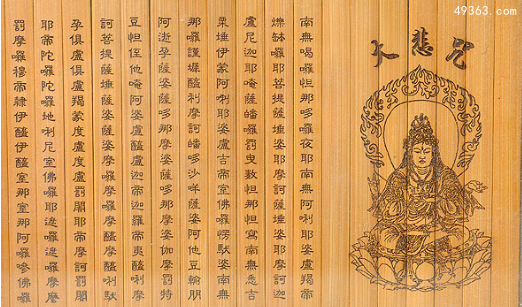 49363.com
大悲咒
南無喝囉怛那哆囉夜耶南無阿唎耶婆盧羯帝
爍缽囉耶菩提薩埵婆耶摩訶薩埵婆耶摩訶迦
盧尼迦耶唵薩皤囉罰曳數怛那怛寫南無悉吉
栗埵伊蒙阿唎耶婆盧吉帝室佛囉愣馱婆南無
那囉謹墀醯利摩訶皤哆沙咩薩婆阿他豆輸朋
阿逝孕薩婆薩哆那摩婆薩哆那摩婆伽摩罰特
豆怛侄他唵阿婆盧醯盧迦帝迦羅帝夷醯唎摩
訶菩提薩埵薩婆薩婆摩囉摩囉摩醯摩醯唎馱
孕俱盧俱盧羯蒙度盧度盧罰闍耶帝摩訶罰闍
耶帝陀囉陀囉地唎尼室佛囉耶遮囉遮囉摩摩
罰摩囉穆帝隸伊醯伊醯室那室那阿囉嘇佛囉